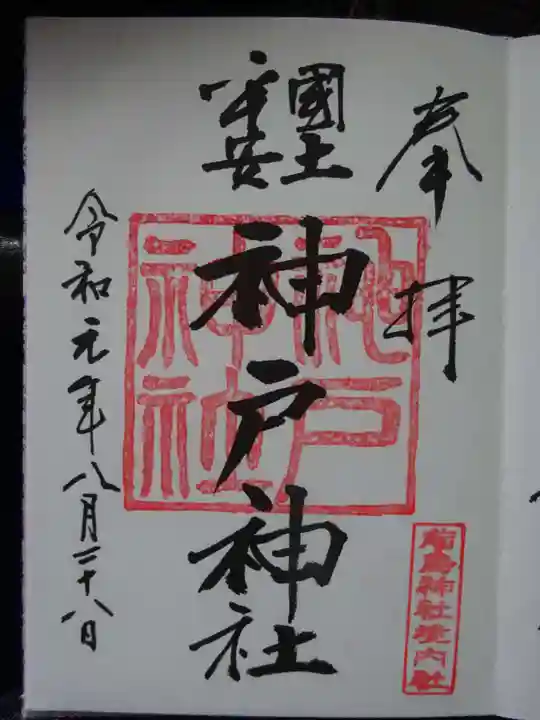 奉拝
國土
平安
神戸神社
神戸
神社
前鳥神社境内社
令和元年八月二十八日